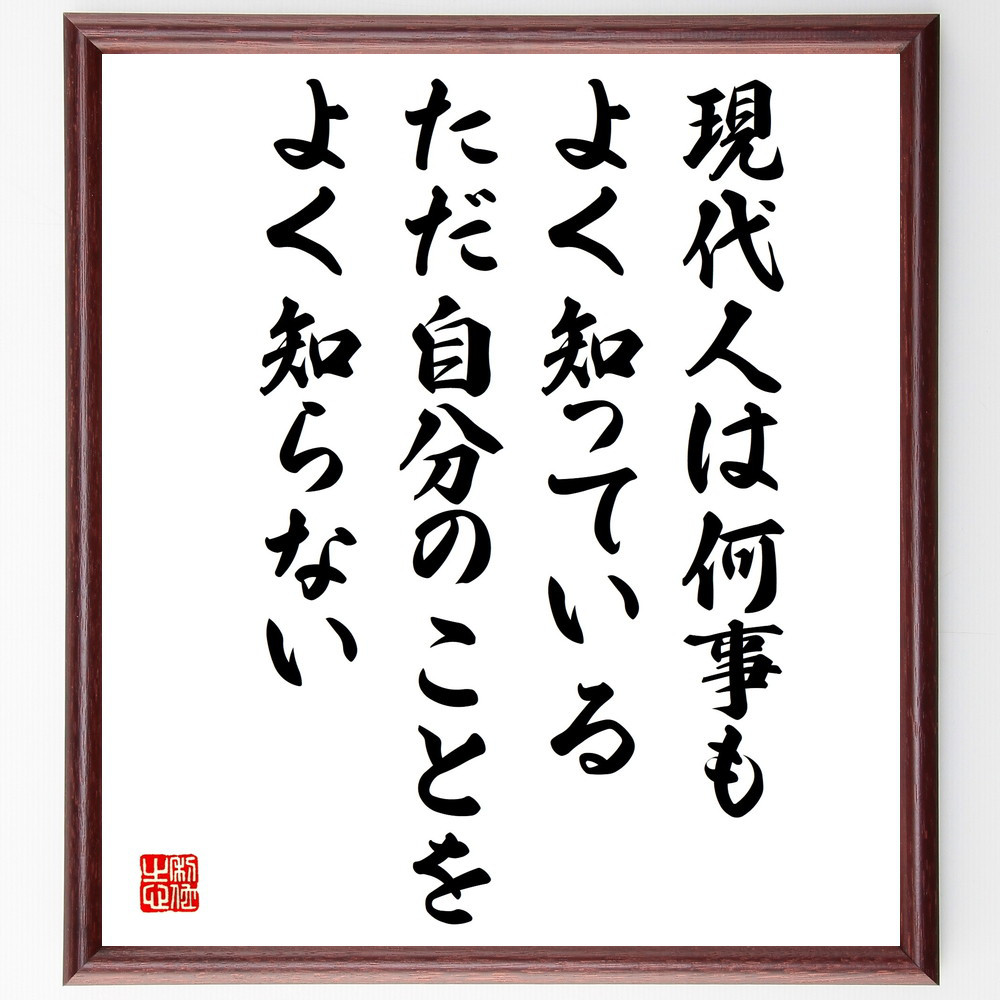 現代人は何事も
よく知っている
ただ自分のことを
よく知らない